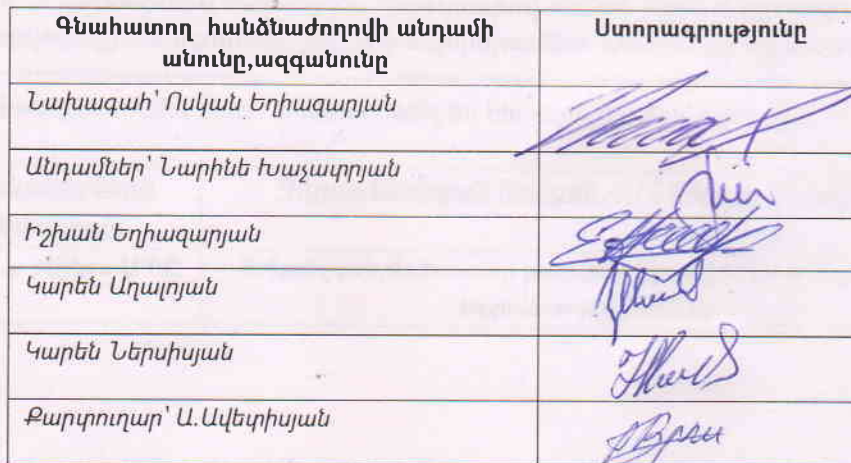 Գնահատող հանձնաժողովի անդամի
անունը,ազգանունը
Ստորագրությունը
Նախագահ՝ Ոսկան Եղիազարյան
Անդամներ՝ Նարինե Խաչատրյան
Իշխան Եղիազարյան
Կարեն Աղալոյան
Կարեն Ներսիսյան
Քարտուղար՝ Ա.Ավետիսյան